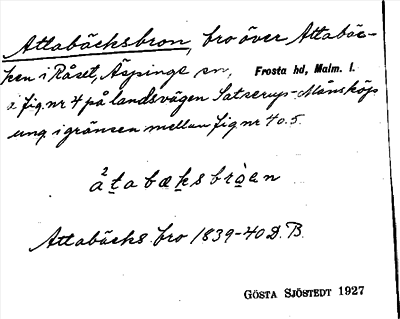 Attabäcksbron, bro över Attabäc-
ken i Råset, Äspinge sn, Frosta hd, Malm. l.
å fig. nr 4 på landsvägen Satserup-Månsköp
ung. i gränsen mellan fig nr 4 o. 5.
²atabæksbròan
Attabäcks bro 1839-40 D. B.
GÖSTA SJÖSTEDT 1927